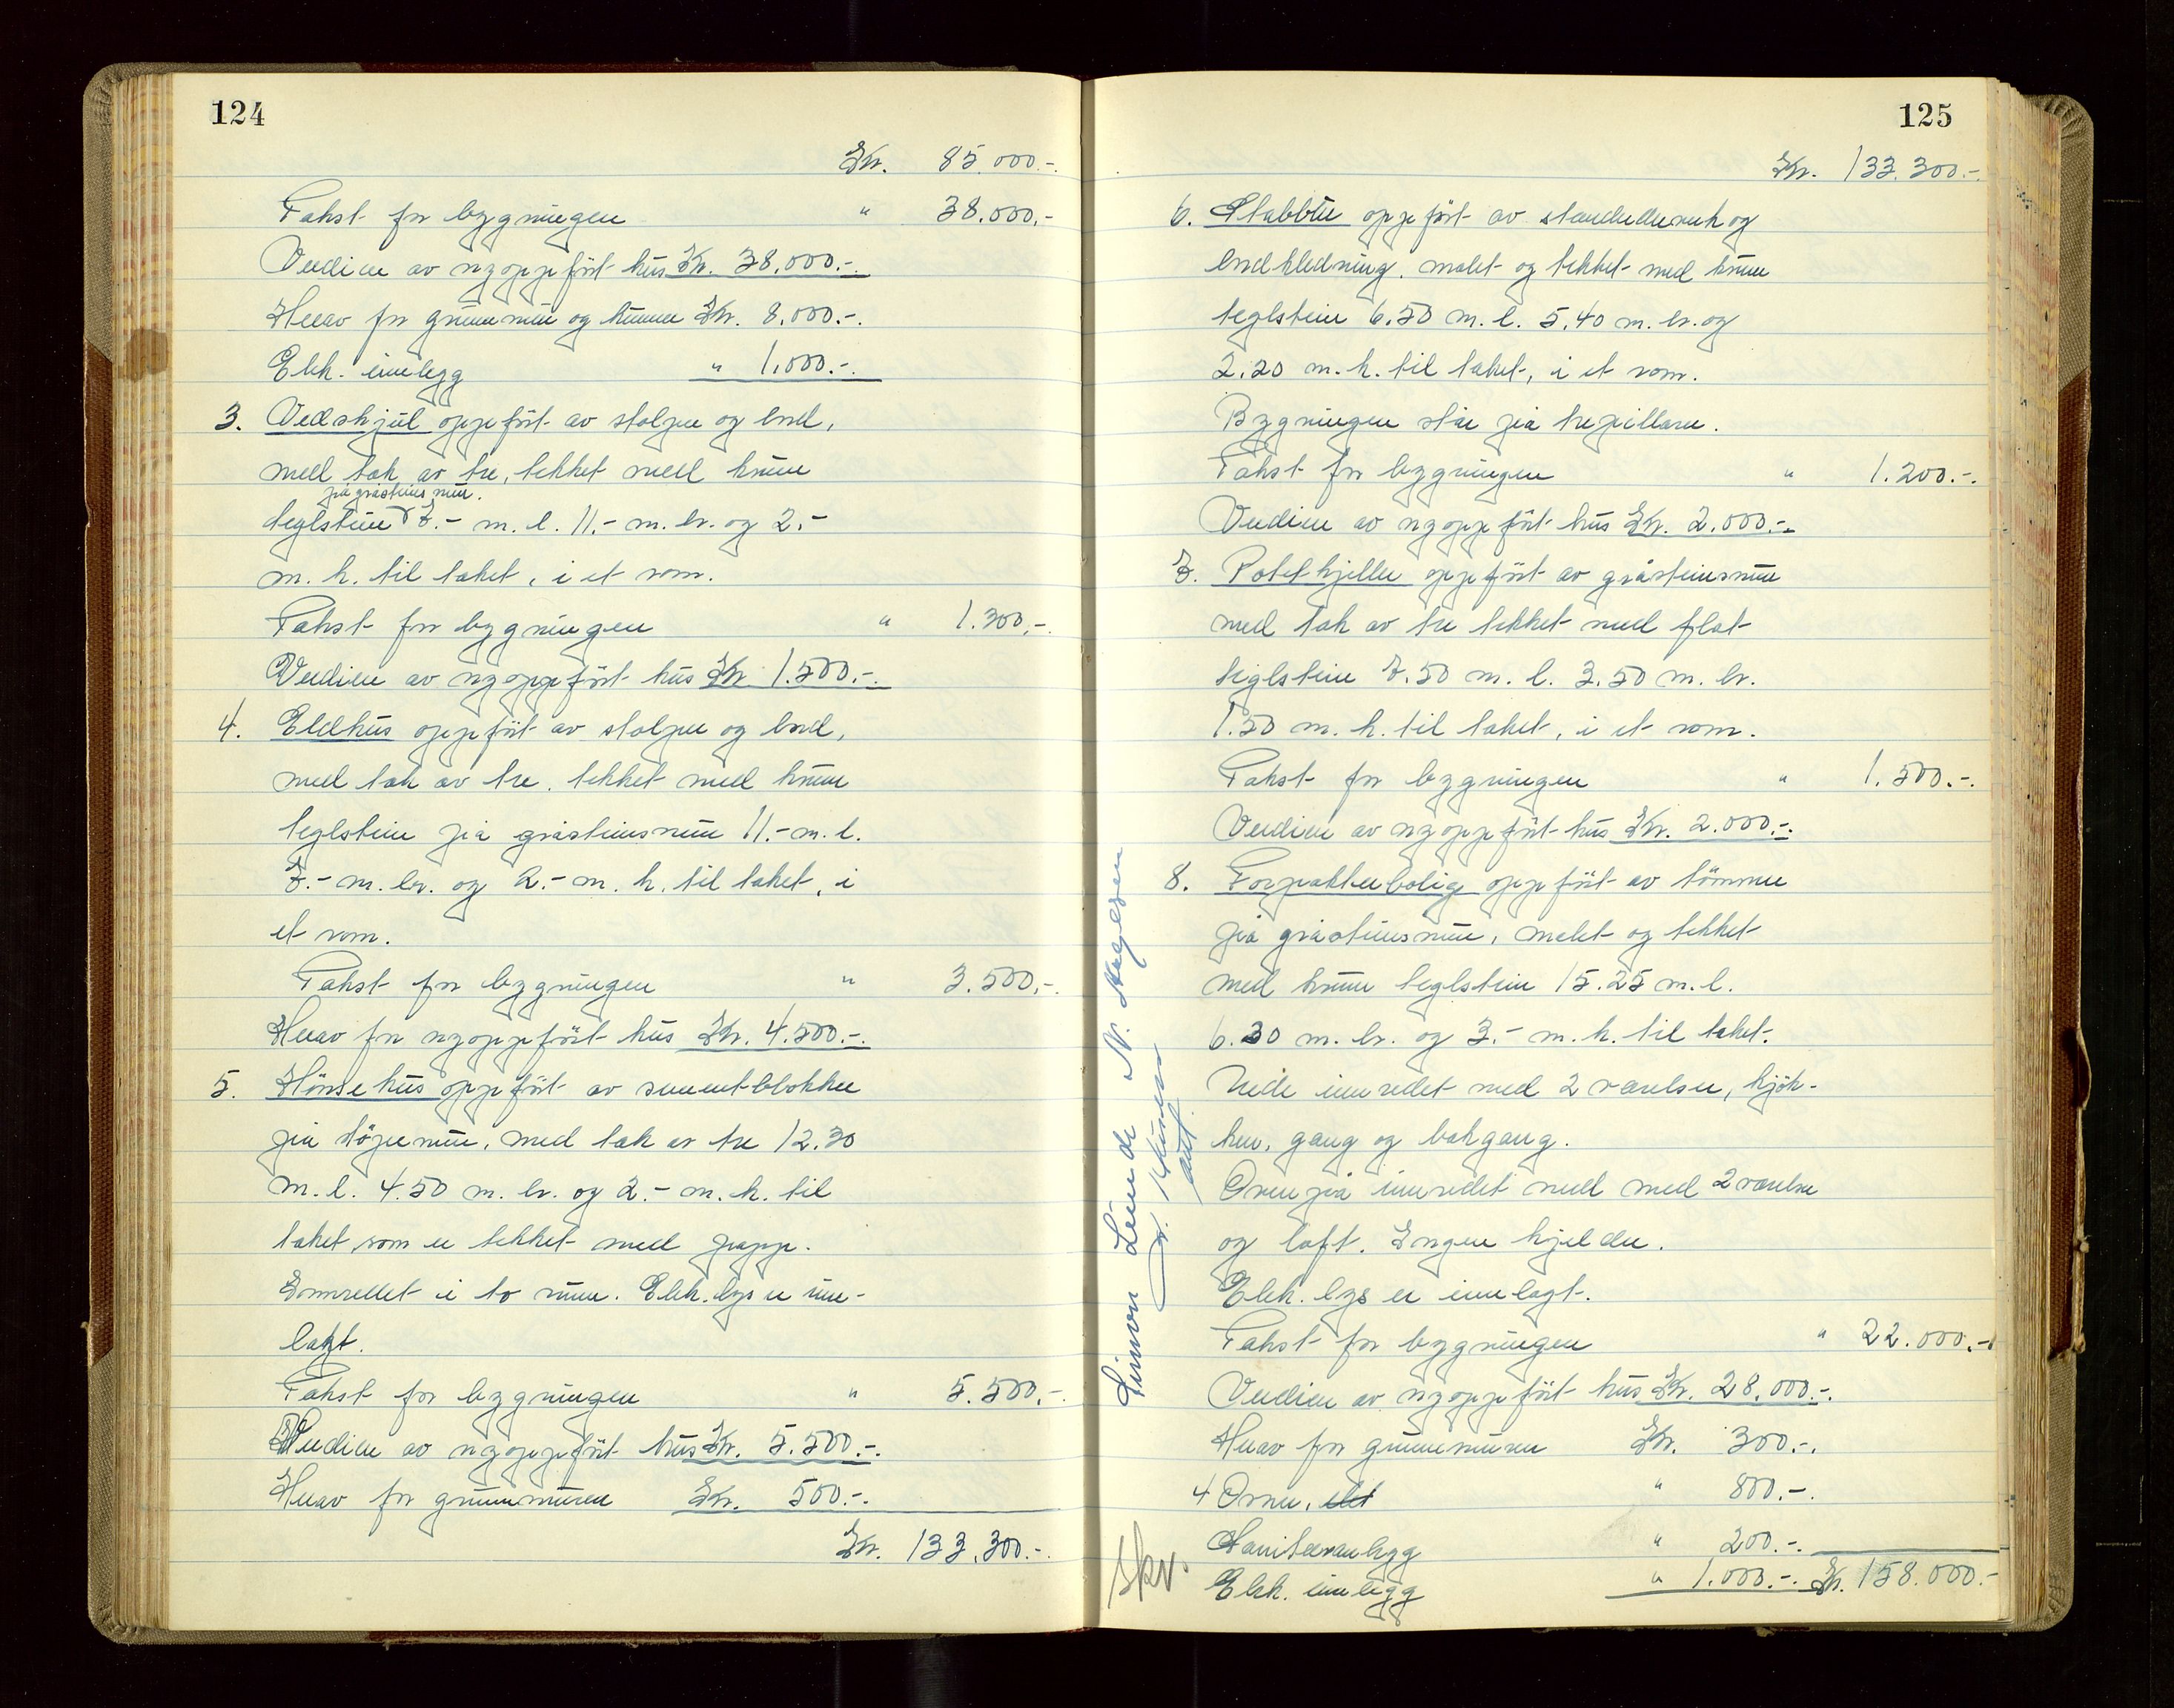 124
Kr. 85.000.-
Takst for bygningen " 38.000.-
Verdien av nyoppfört hus Kr. 38.000.-.
Herav for grunnmur og kummer Kr. 8.000.-.
Elek. innlegg " 1.000.-.
3. Vedskjul oppfört av stolper og bord,
med tak av tre, tekket med krum
på gråsteins mur.
teglstein 7.- m. l. 11.- m. br. og 2.-
m. h. til taket, i et rom.
Takst for bygningen " 1.300.-.
Verdien av nyoppfört hus Kr 1.500.-.
4. Eldhus oppfört av stolper og bord,
med tak av tre, tekket med krum
teglstein på gråsteinsmur 11.- m. l.
7.- m. br. og 2.- m. h. til taket, i
et rom.
Takst for bygningen " 3.500.-.
Herav for nyoppfört hus Kr. 4.500.-.
5. Hönsehus oppfört av sementblokker
på støpemur, med tak av tre 12.30
m. l. 4.50 m. br. og 2.- m. h. til
taket, som er tekket med papp.
Innredet i to rum. Elek. lys er inn-
lagt.
Takst for bygningen " 5.500.-.
Verdien av nyoppfört hus Kr. 5.500.-.
Herav for grunnmuren Kr. 500.-.
Kr. 133.300.-.
125
Kr. 133.300.-.
6. Stabbur oppfört av stenderverk og
bordkledning, malet og tekket med krum
teglstein 6.50 m. l. 5.40 m. br. og
2.20 m. h. til taket, i et rom.
Bygningen står på trepillarer.
Takst for bygningen " 1.200.-.
Verdien av nyoppfört hus Kr. 2.000.-.
7. Potetkjeller oppfört av gråsteinsmur
med tak av tre tekket med flat
teglstein 7.50 m. l. 3.50 m. br.
1.50 m. h. til taket, i et rom.
Takst for bygningen " 1.500.-.
Verdien av nyoppfört hus Kr. 2.000.-.
8. Forpakterbolig oppfört av tömmer
på gråsteinsmur, malet og tekket
med krum teglstein 15.25 m. l.
6.30 m. br. og 3.- m. h. til taket.
Nede innredet med 2 værelser, kjök-
ken, gang og bakgang.
Ovenpå innredet med med 2 værelse
og loft. Ingen kjelder.
Elek. lys er innlagt.
Takst for bygningen " 22.000.-
Verdien av nyoppfört hus Kr. 28.000.-.
Herav for grunnmuren Kr. 300.-.
4 Ovner, " 800.-.
Sanitæranlegg " 200.-.
Elek. innlegg " 1.000.-. Kr. 158.000.-
Simon Lunde N.
skv.